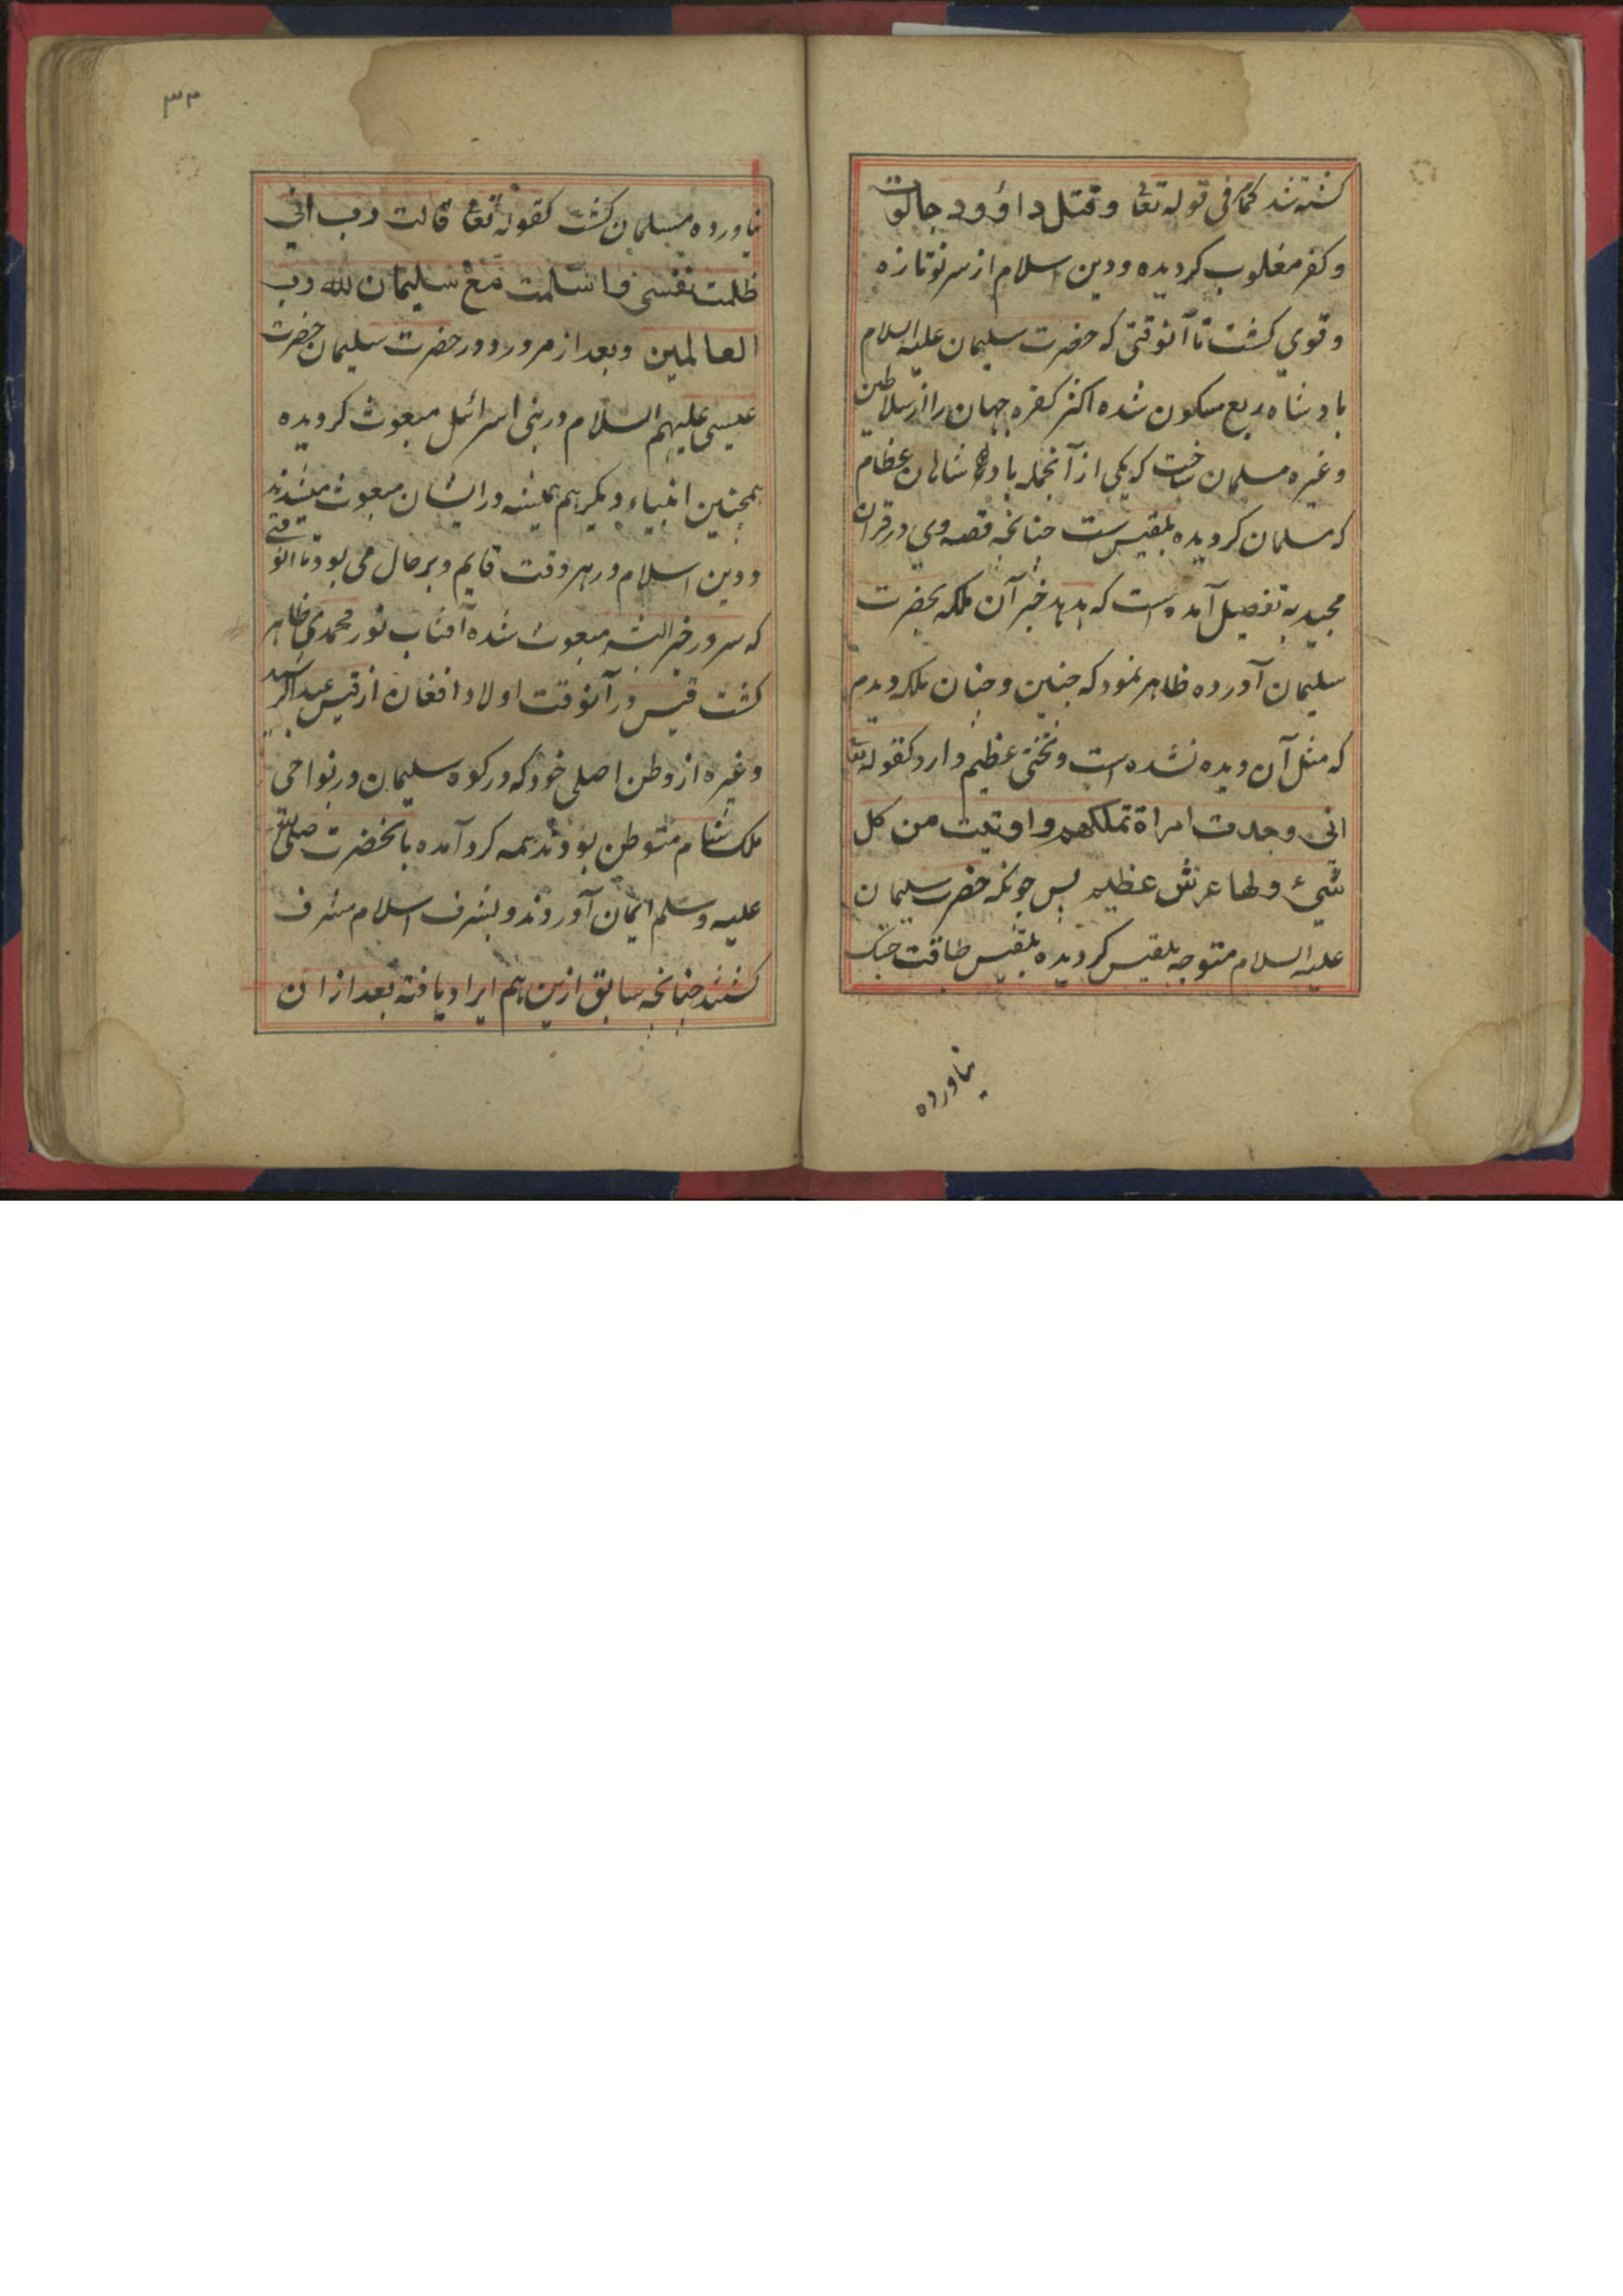 کشته شد کما فی قوله تعا و قتل داؤود جالوت
و کفر مغلوب کردیده و دین اسلام از سر نو تازه
و قوی کشت تا آنوقتی که حضرت سلیمان علیه السلام
بادشاه ربع مسکون شده اکثر کفره جهان را از سلاطین
و غیره مسلمان ساخت که یکی از آنجمله بادشاهان عظام
که مسلمان کردیده بلقیس ست چنانچه قصه وی در قران
مجید به تفصیل آمده است که هدهد خبر آن ملکه بحضرت
سلیمان آورده ظاهر نمود که چنین و چنان ملکه دیدم
که مثل آن دیده نشده است و تختی عظیم دارد کقوله تعا
انی وجدت امراة تملکهم و اوتیت من کل
شیء و لها عرش عظیم پس چونکه حضرت سلیمان
علیه السلام متوجه بلقیس کردیده بلقیس طاقت جنک
نیاورده
۳۳
نیاورده مسلمان کشت کقوله تعا قالت رب انی
ظلمت نفسی و اسلمت مع سلیمان لله رب
العالمین و بعد از مرور دور حضرت سلیمان حضرت
عیسی علیهم السلام در بنی اسرائل مبعوث کردیده
همچنین انبیاء دیکر هم همیشه در ایشان مبعوث میشدند
و دین اسلام در هر وقت قایم و بر حال می بود تا آنوقتی
که سرور خیر البشر مبعوث شده آفتاب نور محمدی ظاهر
کشت قیس در آنوقت اولاد افغان از قیس عبد الرشید
و غیره از وطن اصلی خود که در کوه سلیمان در نواحی
ملک شام متوطن بودند همه کرد آمده بانحضرت صلی الله
علیه وسلم ایمان آوردند و بشرف اسلام مشرف
کشتند چنانچه سابق ازین هم ایراد یافته بعد از ان